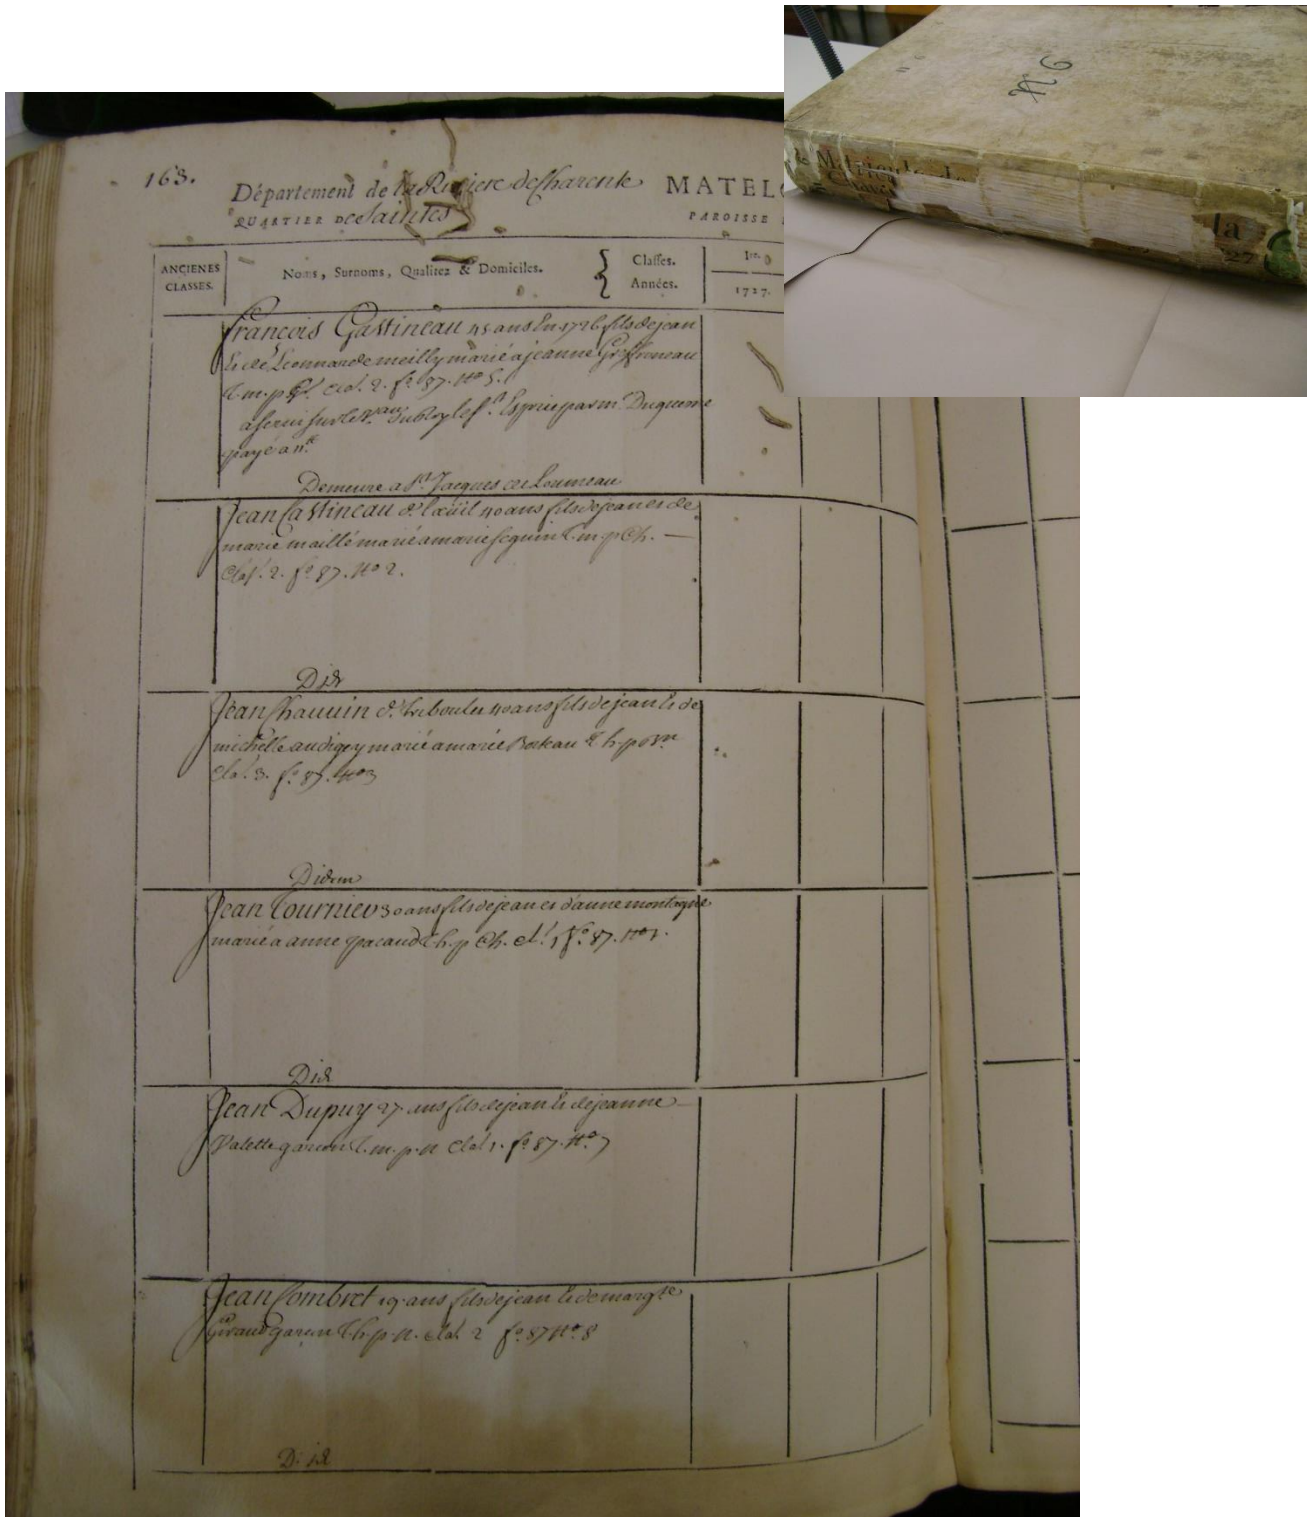 N 6
Matricule
Classe
la
27
163.
Département de la Riviere de Charente MATELO
QUARTIER DE Saintes PAROISSE
ANCIENES CLASSES.
Noms, Surnoms, Qualitez & Domiciles.
Classes.
Années.
1re.
1727.
François Gastineau 45 ans En 1726 fils de jean
Et de Leonnarde meilly marié a jeanne
t. m. p. cla. 2. fo. 87. No 5.
a servi sur le vau du Roy le St. Esprit par m. Duquesne
payé a
Demeure a St. Jacques de Loumeau
Jean Gastineau d. 40 ans fils de jean et de
marie maillé marié a marie seguin t. m. p Ch. —
Clas. 2. fo. 87. No 2.
D id
Jean Chauvin d. 40 ans fils de jean Et de
michelle audigey marié a marie Boteau t. h. p
Cla. 3. fo. 87. No 3
D idem
Jean Tournier 30 ans fils de jean et d'anne montagne
marié a anne pacaud t. h. p Ch. cl. 1 fo. 87. No 1.
D id
Jean Dupuy 27. ans fils de jean Et de jeanne —
Valette garcon t. m. p. n Cla. 1. fo. 87. No. 7
Jean Combret 19. ans fils de jean Et de margte
Giraud garcon t. h. p. n. cla. 2 fo. 87 No. 8
D. id